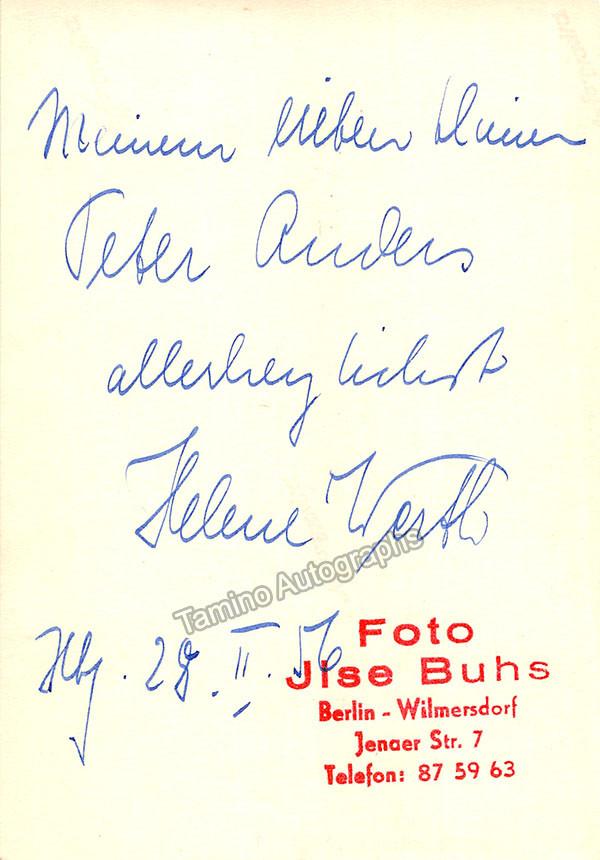 Meinem lieben kleinen
Peter Anders
allerherzlichst
Helene Werth
Tamino Autographs
Hbg. 28. II. 56
Foto
Jlse Buhs
Berlin - Wilmersdorf
Jenaer Str. 7
Telefon: 87 59 63